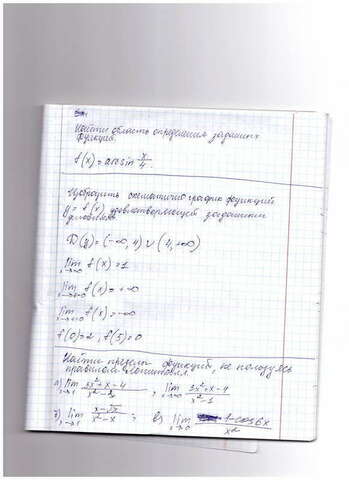 Найти область определения заданных
функций.
f(x) = arcsin x/4.
Изобразить схематично график функции
y = f(x) удовлетворяющей заданным
условиям
D(y) = (-∞, 4) ∪ (4, +∞)
lim f(x) = 1
lim f(x) = +∞
lim f(x) = -∞
f(0) = 2, f(5) = 0
Найти пределы функций, не пользуясь
правилом Лопиталя.
а) lim x→1 ; lim x→∞
б) lim x→1 ; в) lim x→0 (1-cos6x)/x²